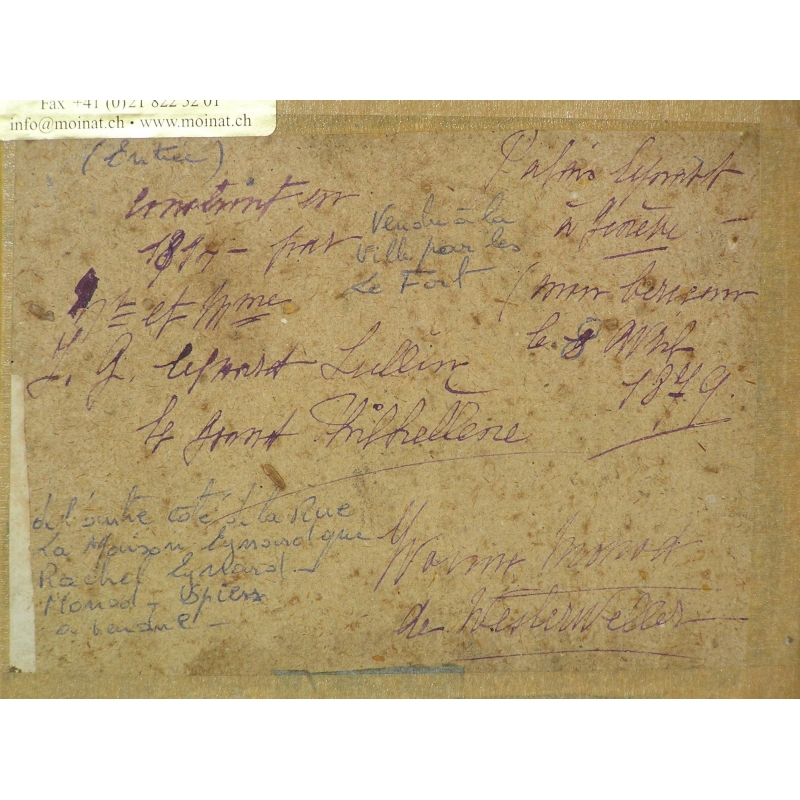 Fax +41 (0)21 822 32 01
info@moinat.ch • www.moinat.ch
(Entrée)
Palais Eynard
à Genève
(mon berceau
le 8 avril
1849.
construit en
18 – par
Mr et Mme
J. G. Eynard Lullin
le grand Philhellène
Vendu à la
Ville par les
Le Fort
de l'autre coté de la Rue
La Maison Eynard que
Rachel Eynard –
Monod – Spiess
a vendue –
Monod
de Westerweller